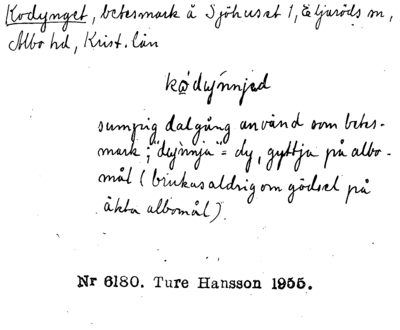 Kodynget, betesmark å Sjöhuset 1, Eljaröds sn,
Albo hd, Krist. län
kodýnnjed
sumpig dalgång använd som betes-
mark; "dýnnja" = dy, gyttja på albo-
mål (brukas aldrig om gödsel på
äkta albomål).
Nr 6180. Ture Hansson 1955.